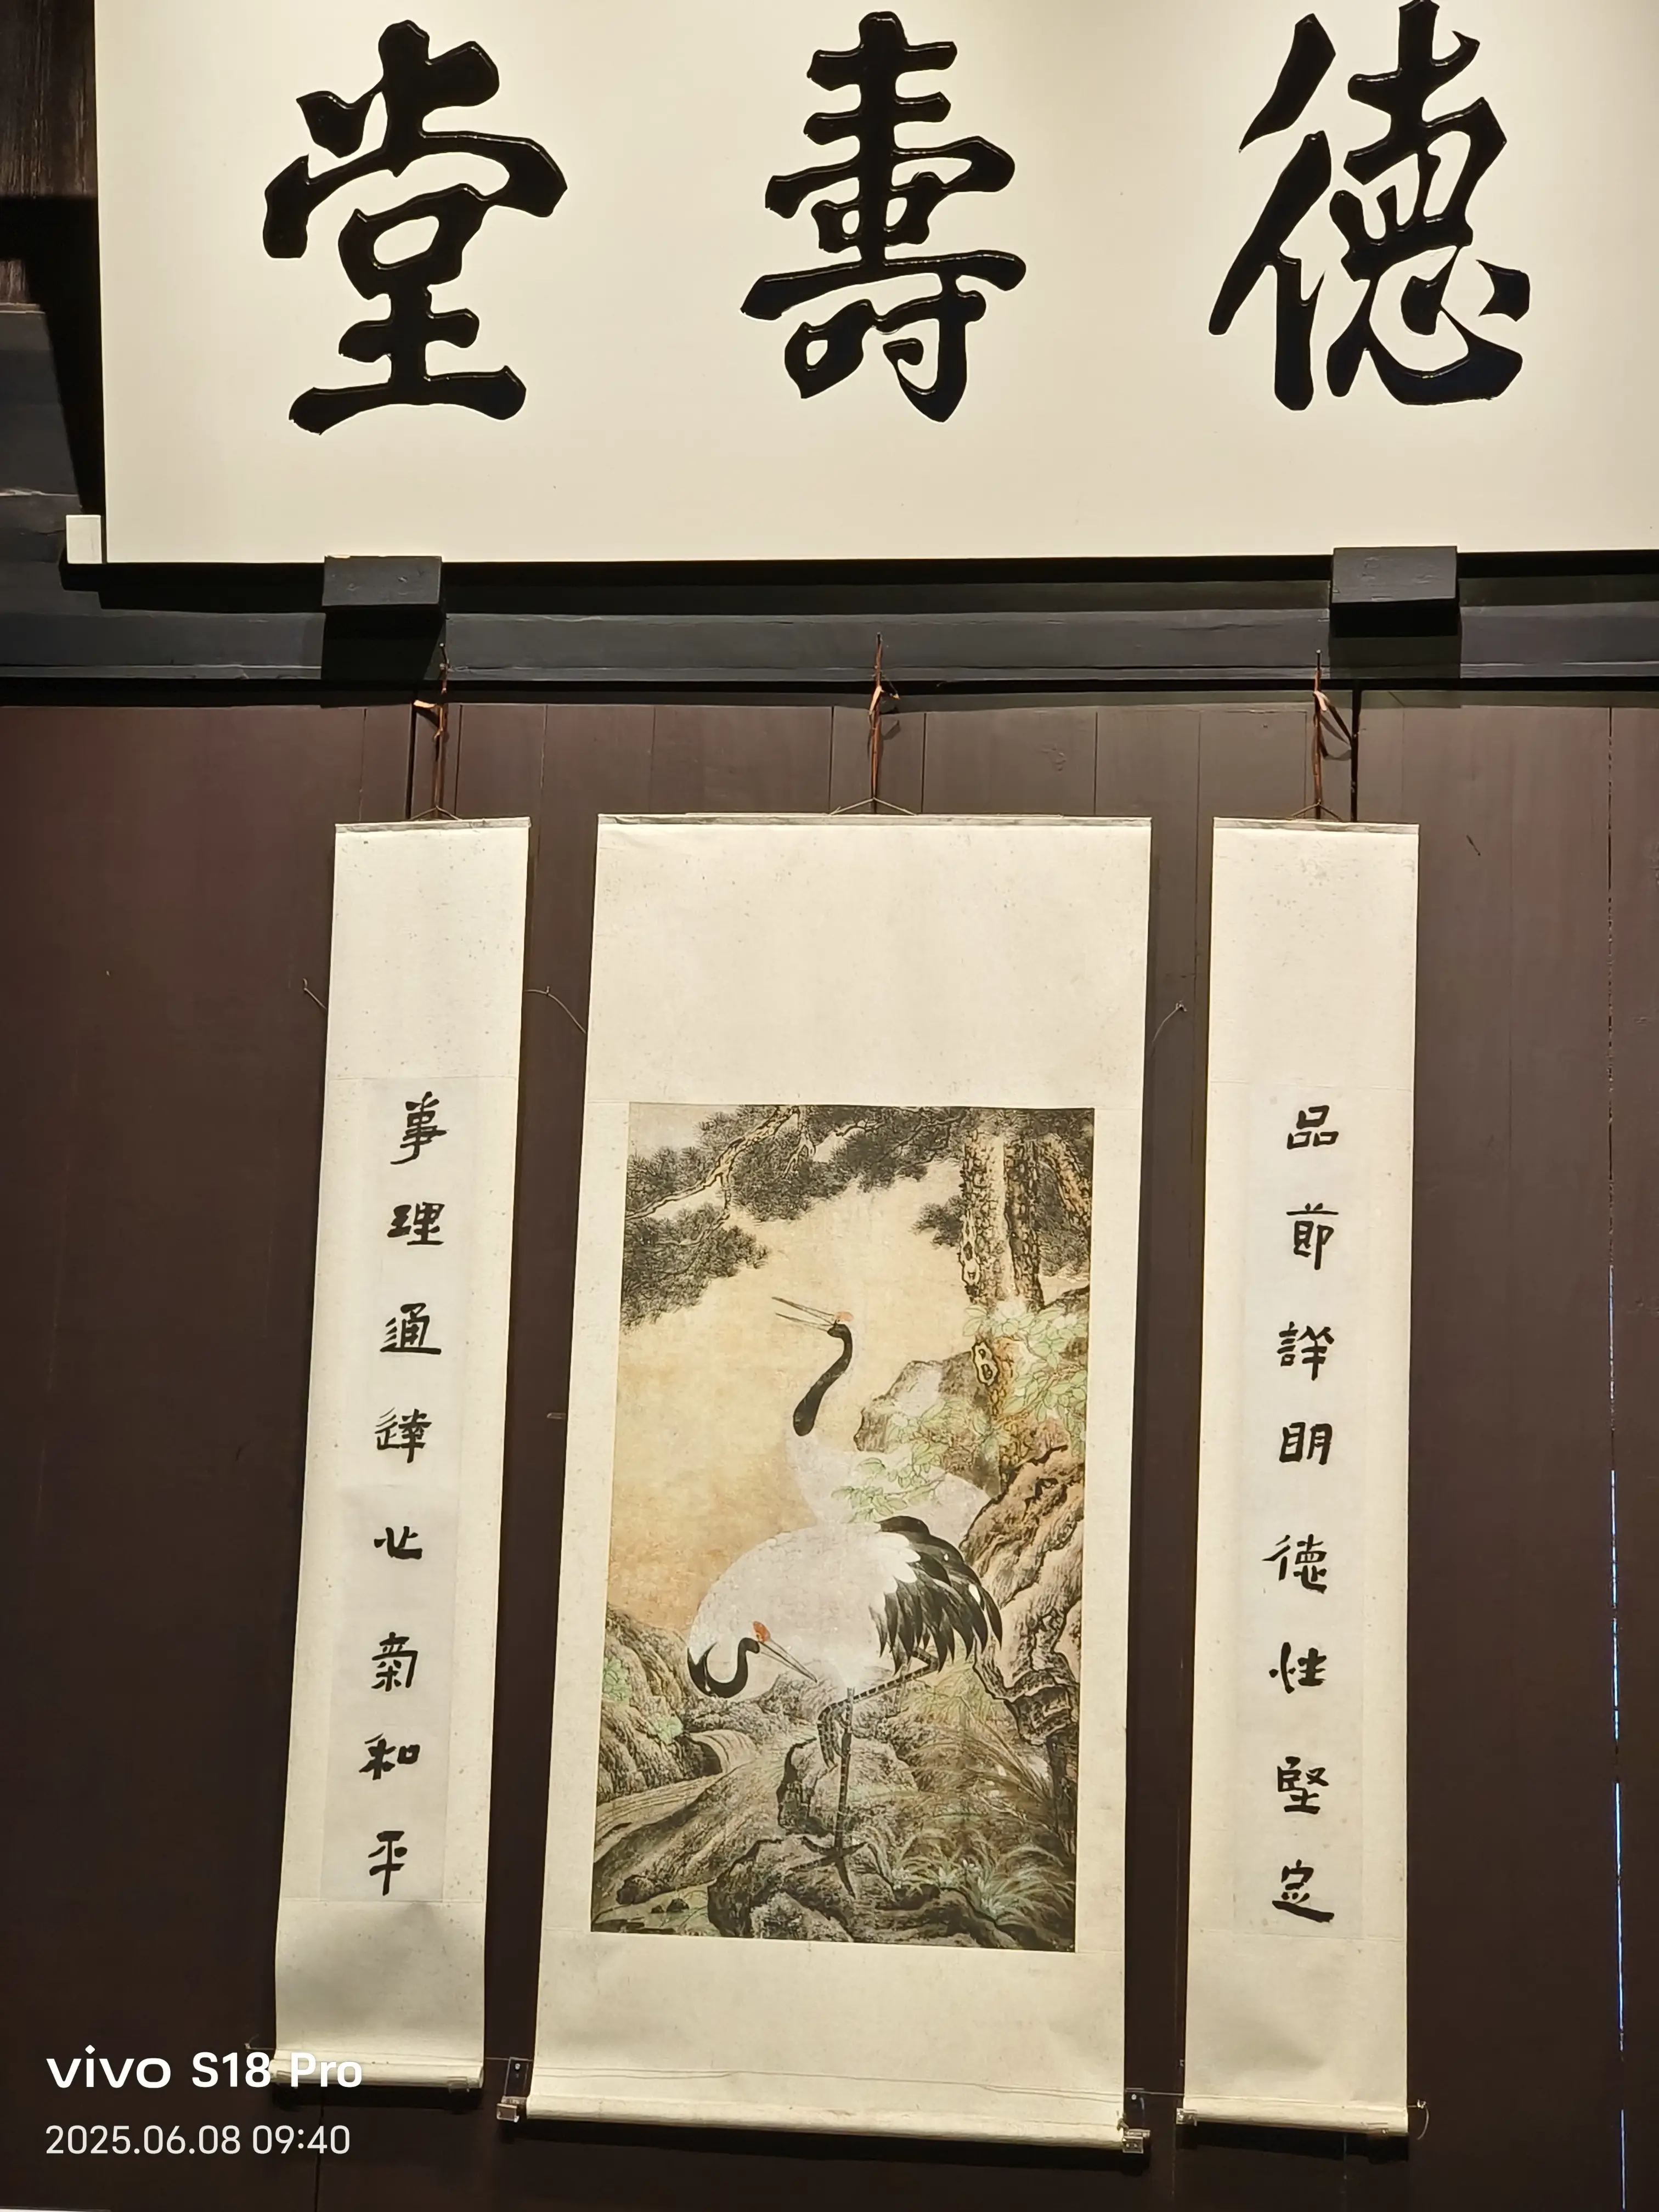 德壽堂
品節詳明德性堅定
事理通達心氣和平
vivo S18 Pro
2025.06.08 09:40